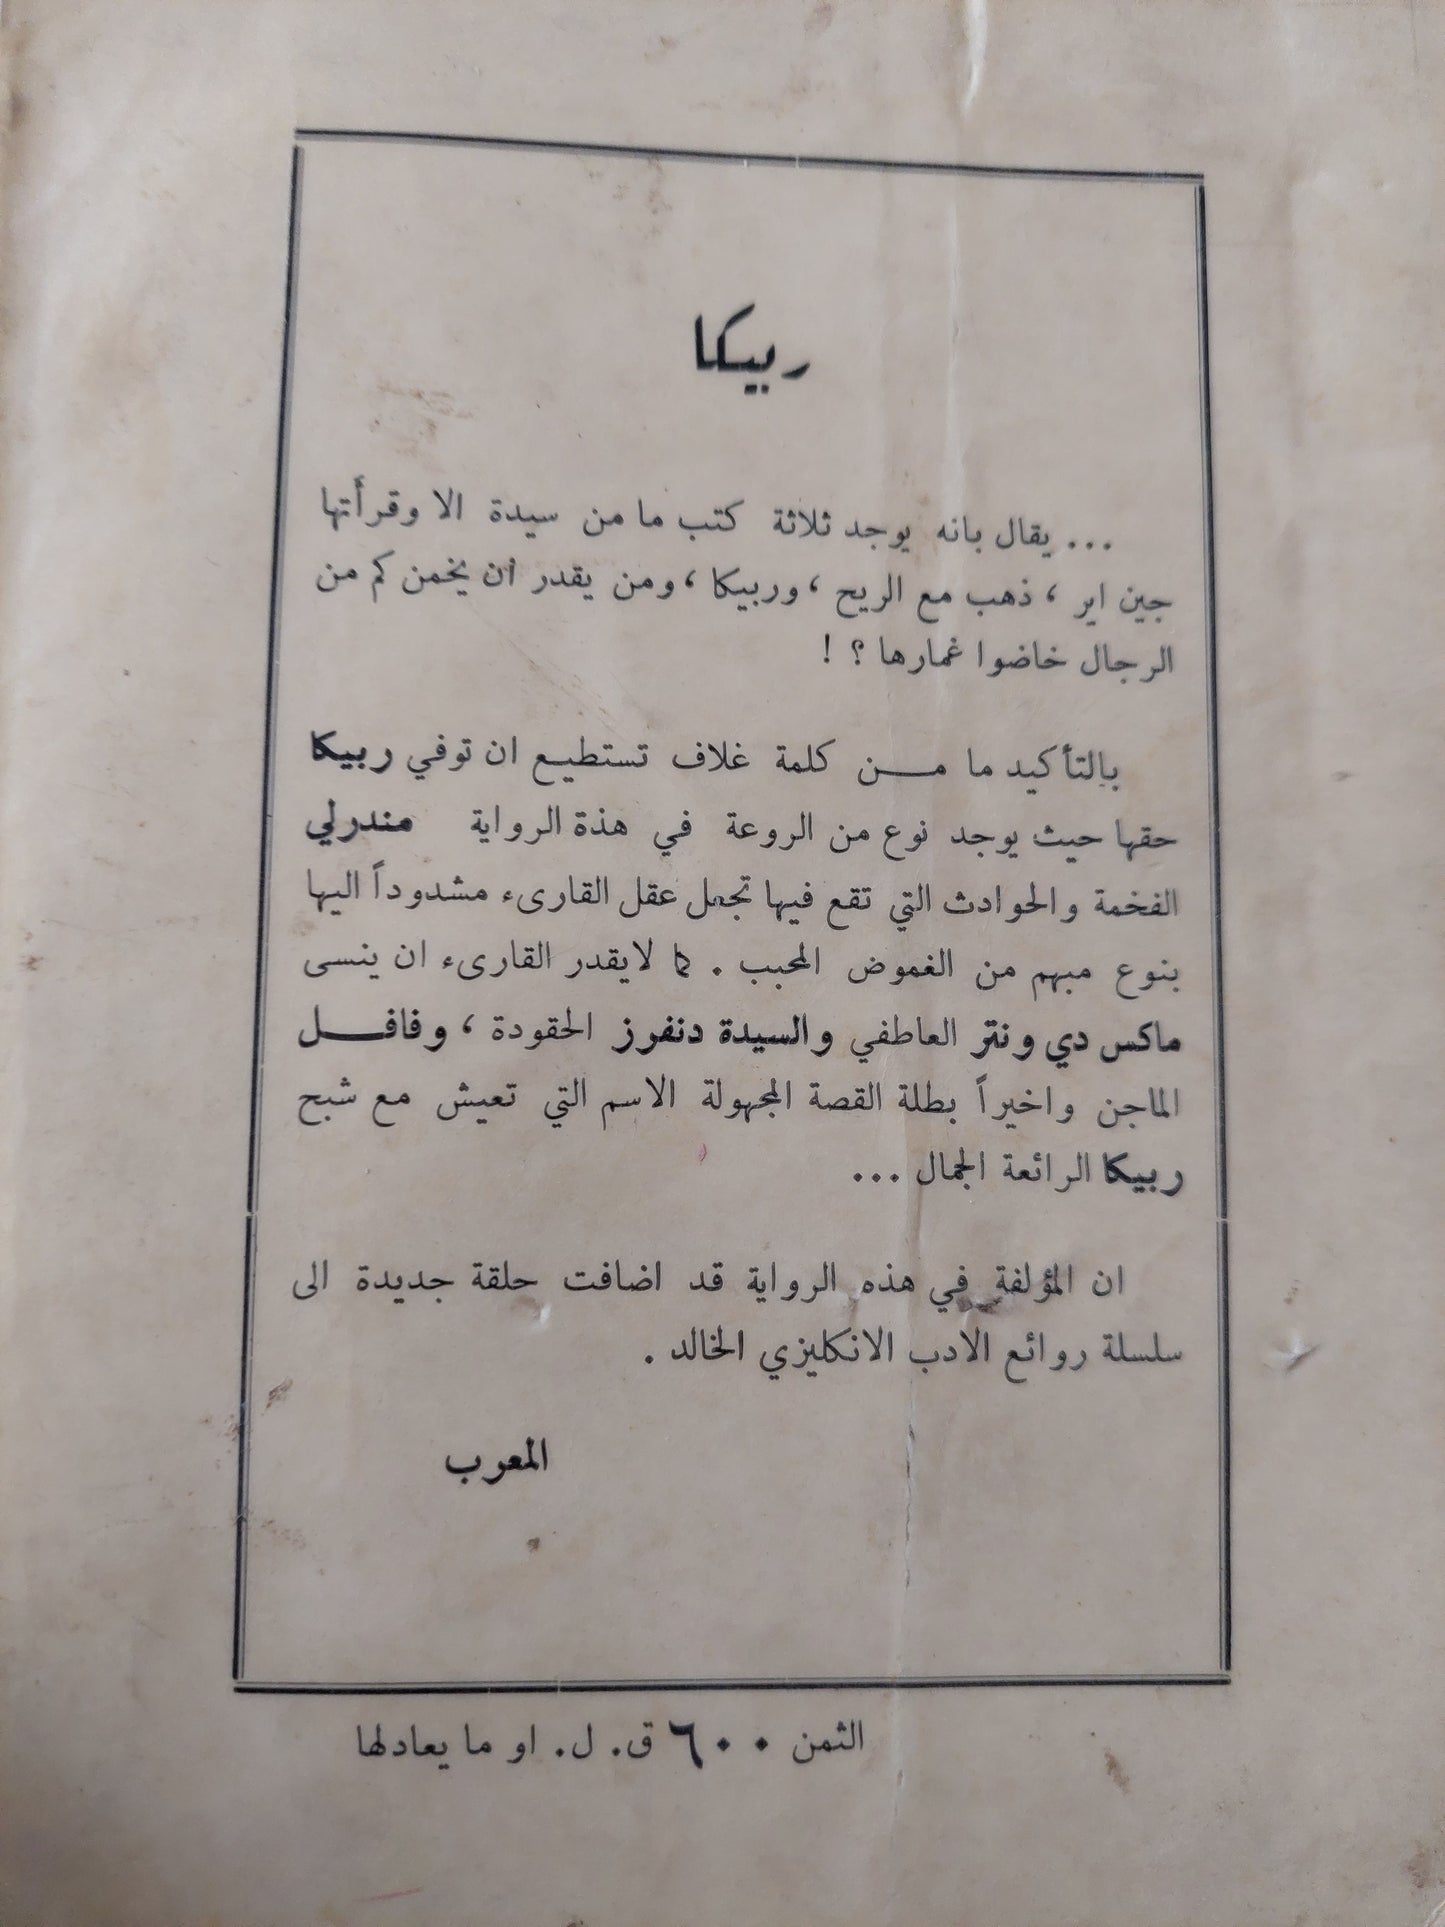 ربيكا
... يقال بانه يوجد ثلاثة كتب ما من سيدة الا وقرأتها
جين اير ، ذهب مع الريح ، وربيكا ، ومن يقدر ان يخمن كم من
الرجال خاضوا غمارها ؟ !
بالتأكيد ما مـــن كلمة غلاف تستطيع ان توفي ربيكا
حقها حيث يوجد نوع من الروعة في هذة الرواية مندرلي
الفخمة والحوادث التي تقع فيها تجعل عقل القارىء مشدوداً اليها
بنوع مبهم من الغموض المحبب . كما لايقدر القارىء ان ينسى
ماكس دي ونتر العاطفي والسيدة دنفرز الحقودة ، وفافـــل
الماجن واخيراً بطلة القصة المجهولة الاسم التي تعيش مع شبح
ربيكا الرائعة الجمال ...
ان المؤلفة في هذه الرواية قد اضافت حلقة جديدة الى
سلسلة روائع الادب الانكليزي الخالد .
المعرب
الثمن ٦٠٠ ق. ل. او ما يعادلها